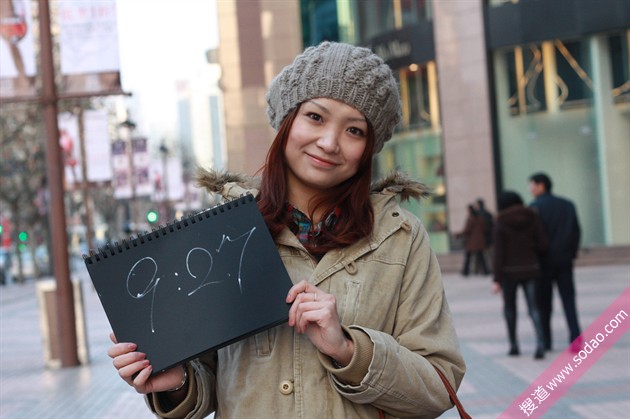 9:27
搜道®www.sodao.com